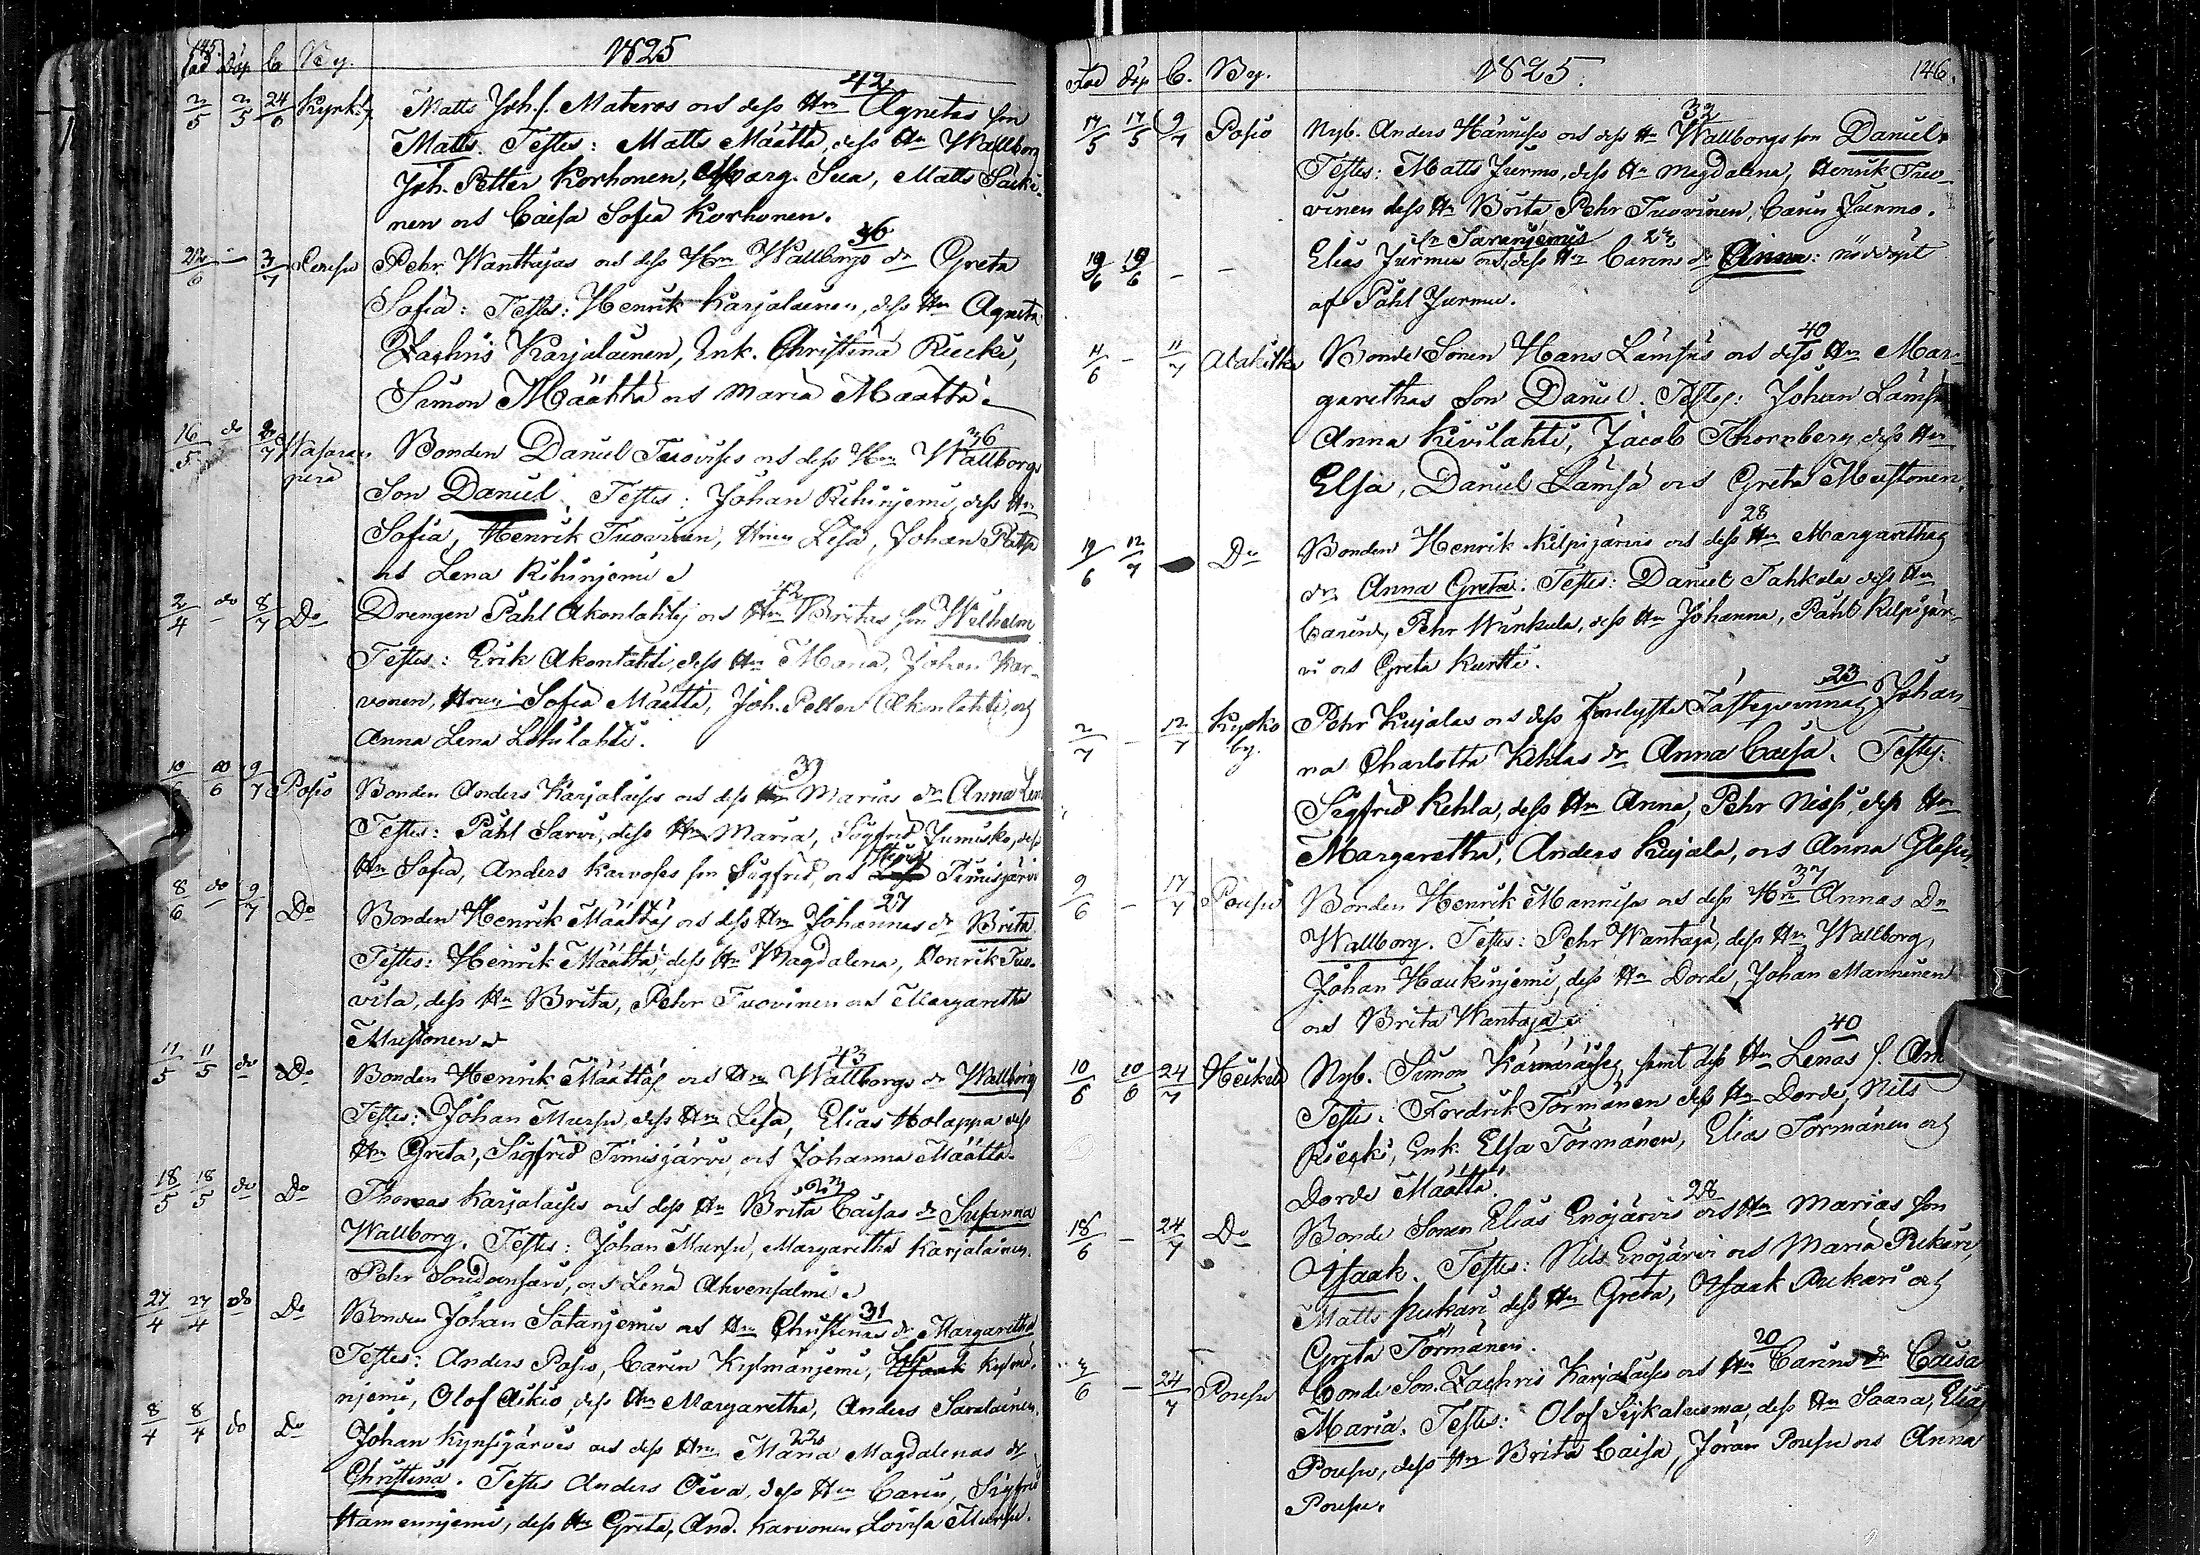 145.
1825
Föd Döp Co By.
2/5 2/5 24/6 Kyrkb. Matts Joh. s. Materos och dess Hu 42 Agnetas son
Matts. Testes: Matts Määttä, dess Hu Wallborg
Joh. Petter Korhonen, Marg. Sua, Matts Särki-
nen och Caisa Sofia Korhonen.
22/6 – 3/7 Pousu Pehr Wanttajas och dess Hu Wallborgs 36 dr Greta
Sofia: Testes: Henrik Karjalainen, dess Hu Agneta
Zachris Karjalainen, Enk. Christina Riecki,
Simon Määttä och Maria Määttä
16/5 do 7 Wasaran
perä Bonden Daniel Tuovises och dess Hu Wallborgs 36
Son Daniel. Testes: Johan Rihinjemi, dess Hu
Sofia, Henrik Tuovinen, Hru Lisa, Johan
och Lena Rihinjemi
2/4 do 8/7 Do Drengen Påhl Akonlahtis och Hu 42 Britas son Wilhelm
Testes: Erik Akonlahti, dess Hu Maria, Johan Kar-
vonen, Hru Sofia Määttä, Joh. Petter Akonlahti, och
Anna Lena Lehtilahti.
10/6 10/6 9/7 Posio Bonden Anders Karjalaises och dess Hu Marias 39 dr Anna Len
Testes: Påhl Sarvi, dess Hu Maria, Sigfrid Jumisko, dess
Hu Sofia, Anders Karvoses son Sigfrid, och Timisjärvi
8/6 do 9/7 Do Bonden Henrik Määttäs och dess Hu Johannas 27 dr Brita
Testes: Henrik Määttä, dess Hu Magdalena, Henrik Tuo-
vila, dess Hu Brita, Pehr Tuovinen och Margaretha
Mustonen
11/5 11/5 do Do Bonden Henrik Määttäs och Hu Wallborgs 43 dr Wallborg
Testes: Johan Mursu, dess Hu Lisa, Elias Holappa dess
Hu Greta, Sigfrid Timisjärvi, och Johanna Määttä.
18/5 18/5 do Do Thomas Karjalaises och dess Hu Brita Caisas 23 dr Susanna
Wallborg. Testes: Johan Mursu, Margaretha Karjalainen
Pehr Soudansari, och Lena Ahvensalmi
27/4 27/4 do Do Bonden Johan Satanjemis och Hu Christinas 31 dr Margaretha
Testes: Anders Posio, Carin Kylmänjemi, Kylmä-
njemi, Olof Aikio, dess Hu Margaretha, Anders Saralainen.
8/4 8/4 do Do Johan Kynsijärvis och dess Hu Maria 22 Magdalenas dr
Christina. Testes Anders Oiva, dess Hu Carin, Sigfrid
Hamennjemi, dess Hu Greta, And. Karvonen Lovisa Mursu.
146.
1825.
Föd Döp C. By.
17/5 17/5 9/7 Posio Nyb. Anders Hännises och dess Hu Wallborgs 32 son Daniel.
Testes: Matts Jurmo, dess Hu Magdalena, Henrik Tuo-
vinen dess Hu Brita, Pehr Tuovinen, Carin Jurmo.
19/6 19/6 – – Elias Jurmus och dess Hu Carins 22 dr Anna: nöddöpt
fr Saranjemis
af Påhl Jurmu.
11/6 – 11/7 Alakitka Bonde Sonen Hans Lämsäs och dess Hu 40 Mar-
garethas Son Daniel. Testes: Johan Lämsä
Anna Kivilahti, Jacob Thornberg, dess Hu
Elsa, Daniel Lämsä och Greta Mustonen,
19/6 12/7 Do Bonden Henrik Kilpijärvis och dess Hu 28 Margarethas
dr Anna Greta. Testes: Daniel Tahkola dess Hu
Carin, Pehr Wirkula, dess Hu Johanna, Påhl Kilpijär-
vi och Greta Kurtti.
2/7 – 12/7 Kyrko
by. Pehr Kujalas och dess Förelofste Lästeqvinnas 23 Johan-
na Charlotta Kehlas dr Anna Caisa. Testes:
Sigfrid Kehla, dess Hu Anna, Pehr Nissi, dess Hu
Margaretha, Anders Kujala, och Anna
9/6 – 17/7 Pousu Bonden Henrik Mannises och dess Hu 37 Annas Dr
Wallborg. Testes: Pehr Wantaja, dess Hu Wallborg,
Johan Haukinjemi, dess Hu Dorde, Johan Manninen
och Brita Wantaja
10/6 10/6 24/7 Heikilä Nyb. Simon Kämäräises, samt dess Hu 40 Lenas s.
Testes: Fredrik Törmänen dess Hu Dorde, Nils
Riecki, Enk. Elsa Törmänen, Elias Törmänen och
Dorde Määttä.
18/6 – 24/7 Do Bonde Sonen Elias Enojärvis och Hu 28 Marias son
Isaak. Testes: Nils Enojärvi och Maria Pukari,
Matts Pukari dess Hu Greta, Isaak Pukari och
Greta Törmänen.
3/6 – 24/7 Pousu Bonde Son. Zachris Karjalaises och Hu 20 Carins dr Caisa
Maria. Testes: Olof Sijkaluoma, dess Hu Saara, Elias
Pousu, dess Hu Brita Caisa, Jöran Pousu och Anna
Pousu.